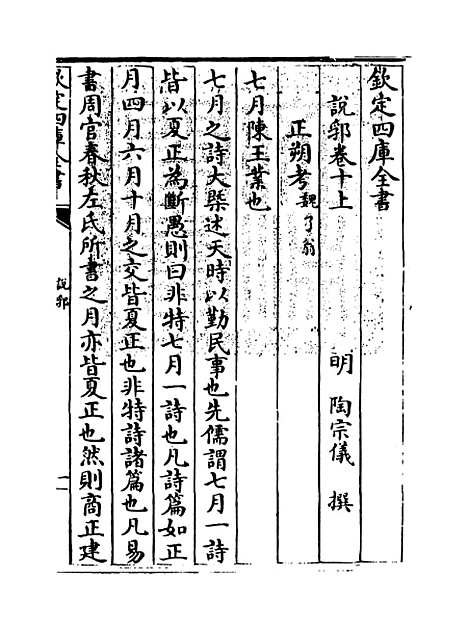 欽定四庫全書
說郛卷十上
明　陶宗儀　撰
正朔考 魏了翁
七月陳王業也
七月之詩大槩述天時以勤民事也先儒謂七月一詩
皆以夏正為斷愚則曰非特七月一詩也凡詩篇如正
月四月六月十月之交皆夏正也非特詩諸篇也凡易
書周官春秋左氏所書之月亦皆夏正也然則商正建
欽定四庫全書
說郛
一